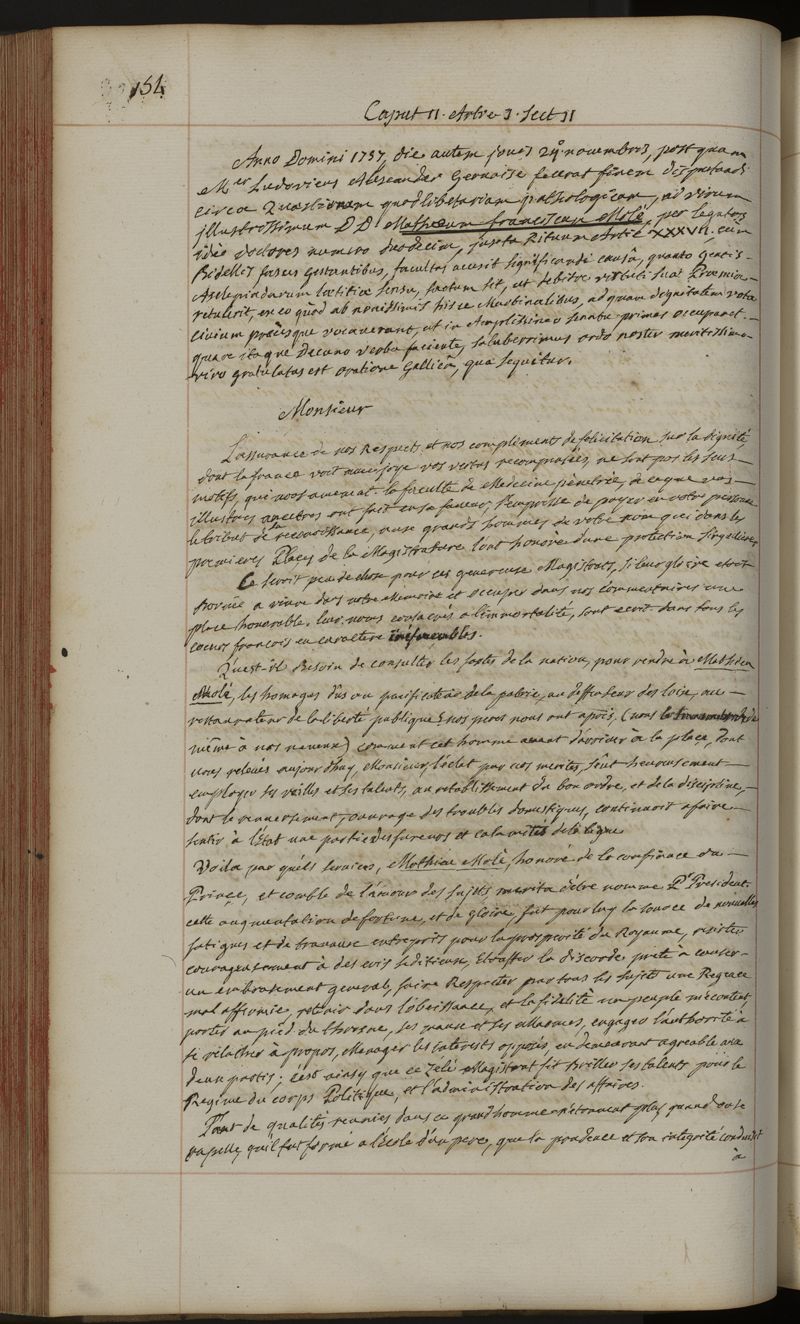 154
Caput II. Art.e 3. Sect II
Anno Domini 1757, die autem jovis 24.a novembris, postquam
M.er Ludovicus Alexander Gervaise fecerat finem disputandi
circa Quaestionem quodlibetariam pathologicam, ad virum
illustrissimum D D Mathæum franciscum Molé, per legatos
ideo doctores numero duodecim, juxta Ritum Artic XXXVII, cum
Bidellis fasces gestantibus, facultas accessit significandi causâ, quanto Gentis-
Asclepiadarum lætitiæ sensu, factum sit, ut debitæ virtuti suæ Præmia-
retulerit, in eo quòd ab novissimis hisce Martinalibus, ad quam dignitatem vota
civium precesque vocaverant, ut in Amplissimo senatu primas occuparet.-
quare itaque Decano verba faciente, saluberrimus ordo noster meritissimo-
viro gratulatus est oratione Gallicâ, quæ sequitur.
Monsieur
L'assurance de nos Respects et nos compliments de felicitation sur la dignité,
dont la france voit avec joye vos vertus recompensées, ne sont pas les seuls-
motifs, qui nous amenent. la faculté de Medecine penetrée, de ce que vos-
illustres ancêtres ont fait en sa faveur, s'empresse de payer en votre personne
le tribut de la reconnoissance, aux grands hommes de votre nom qui dans les
premieres Places de la Magistrature l'ont honorée d'une protection singuliere,
Ce seroit peu de chose pour ces genereux Magistrats, si leur gloire etoit
Bornée a vivre dans notre Memoire et occuper dans nos commentaires une
place honorable. leur nom consacrés a l'immortalité, sont ecrit dans tous les
coeurs françois en caractere ineffaceables.
Qu'est-il Besoin de consulter les fastes de la nation, pour rendre à Mathieu
Molé, les homages dûs au pacificateur de la patrie, au deffenseur des loix, au-
restaurateur de la liberté publique? nos peres nous ont apris, (nous le transmettrons de
même à nos neveux) comment cet homme avant d'arriver à la place, dont
vous relevés aujourd'huy, Monsieur, l'éclat par vos merites, sçut heureusement-
employer ses veilles et ses talents, au retablissement du bon ordre, et de la discipline,-
dont le renversement, ouvrage des troubles domestiques, continuoit afaire-
sentir à l'Etat une partie des fureurs et calamités de la ligue
Voila par quéls services, Mathieu Molé, honoré de la confiance du-
Prince, et comblé de l'amour des sujets merita d'être nommé P.r President.
cette augmentation de fortune, et de gloire, fut pour luy la source de nouvelles
fatigues et de travaux entrepris pour la prosperité du Royaume, resister
courageusement à des cris seditieux, Etouffer la discorde prete à causer-
un embrasement general, faire Respecter par tous les sujets une Regence
mal affermie, retenir dans l'obeissance, et la fidelité un peuple mécontent,
porter au pied du throsne, ses vœux et ses allarmes, engager l'authorité à
se relacher à propos, Menager les interests opposés en demeurant agreable aux
deux partis; c'est ainsy que ce zelé Magistrat fit Briller ses talents pour le
Regime du corps Politique, et l'administration des affaires.
Tant de qualités reunies dans ce grand homme n'etonnent plus quand on se
rapelle qu'il fut formé a l'école d'un pere, que la prudence et son integrité conduisit
à